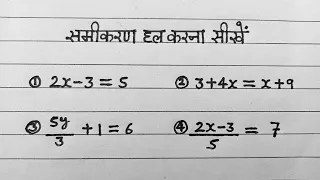 समीकरण हल करना सीखें
① 2x-3 = 5 ② 3+4x = x+9
③ 5y/3 + 1 = 6 ④ 2x-3/5 = 7